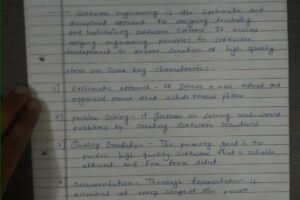 - Software engineering is the systematic and
disciplined approach to designing developing
and maintaining software systems. It involves
applying engineering principles to software
development to ensure creation of high quality
Here are some key characteristics -
1) Systematic approach - SE follows a well-defined and
organized process that include various phases
2) problem Solving - It focuses on solving real-world
problems by creating software solutions
3) Quality Orientation - The primary goal is to
produce high quality software that is reliable
efficient and free from defect
4) Documentation - Thorough documentation is
essential at every stage of the process